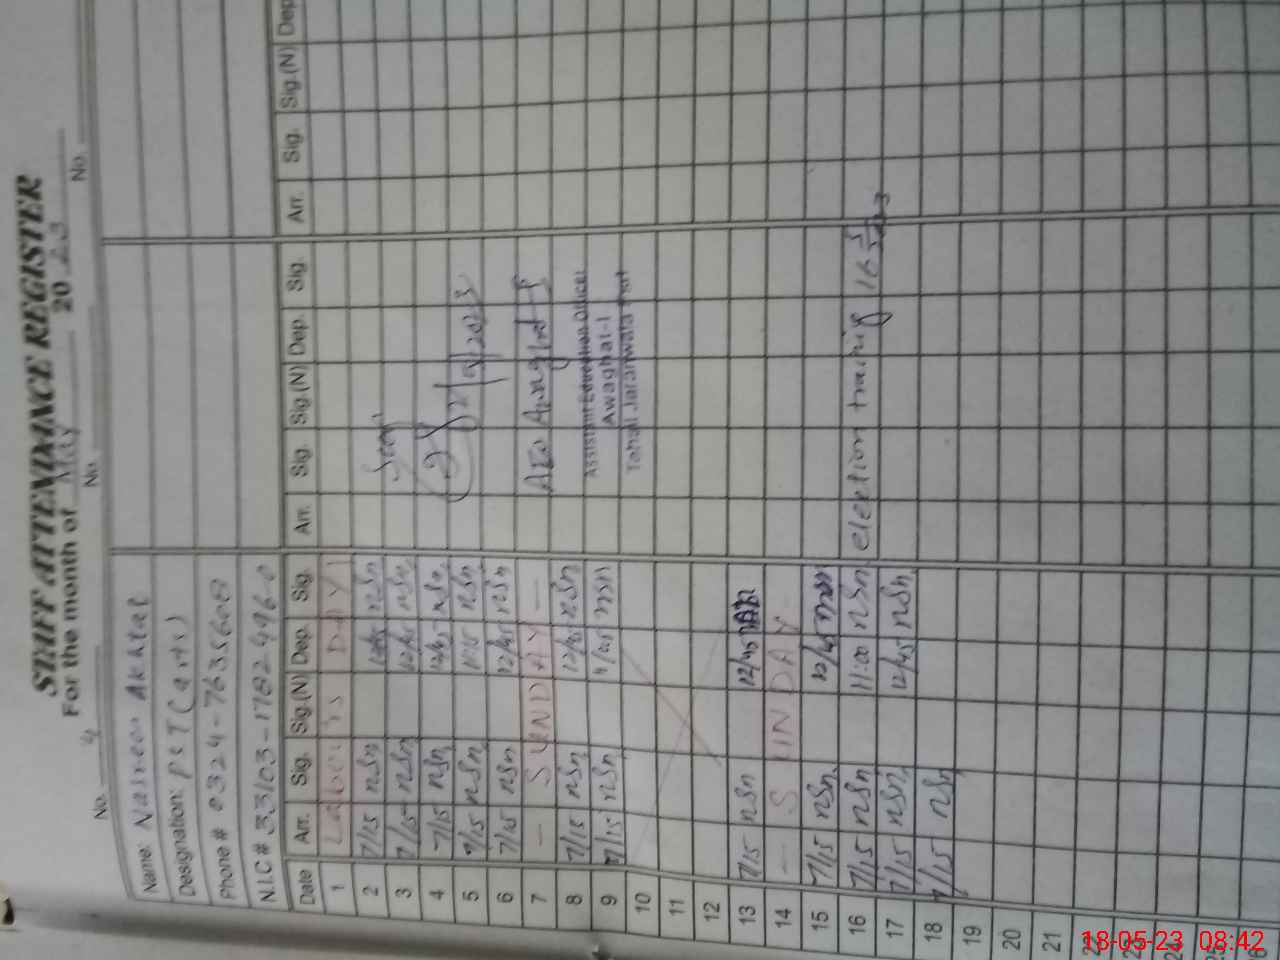 STAFF ATTENDANCE REGISTER
For the month of May 20 23
No. 4 No. No.
Name: Nasreen Akhtar
Designation: PST (Arts)
Phone # 0324-7635608
N.I.C # 33103-1782496-0
Date Arr. Sig. Sig.(N) Dep. Sig. Arr. Sig. Sig.(N) Dep. Sig. Arr. Sig. Sig.(N) Dep.
1 DAY
2 7/15 nSn nSn
3 7/15 nSn 12/45 nSn Seen
4 7/15 nSn 12/45 nSn
5 7/15 nSn 11/15 nSn
6 7/15 nSn 12/45 nSn
7 — SUNDAY — AEO Awaghat-I
8 7/15 nSn 12/45 nSn Assistant Education Officer
Awaghat-I
9 7/15 nSn nSn Tehsil Jaranwala
10
11
12
13 7/15 nSn 12/45
14 — SUNDAY —
15 7/15 nSn 12/45 nSn
16 7/15 nSn 11:00 nSn election training 16
17 7/15 nSn 12/45 nSn
18 7/15 nSn
19
20
21
22
23
24
25
18-05-23 08:42